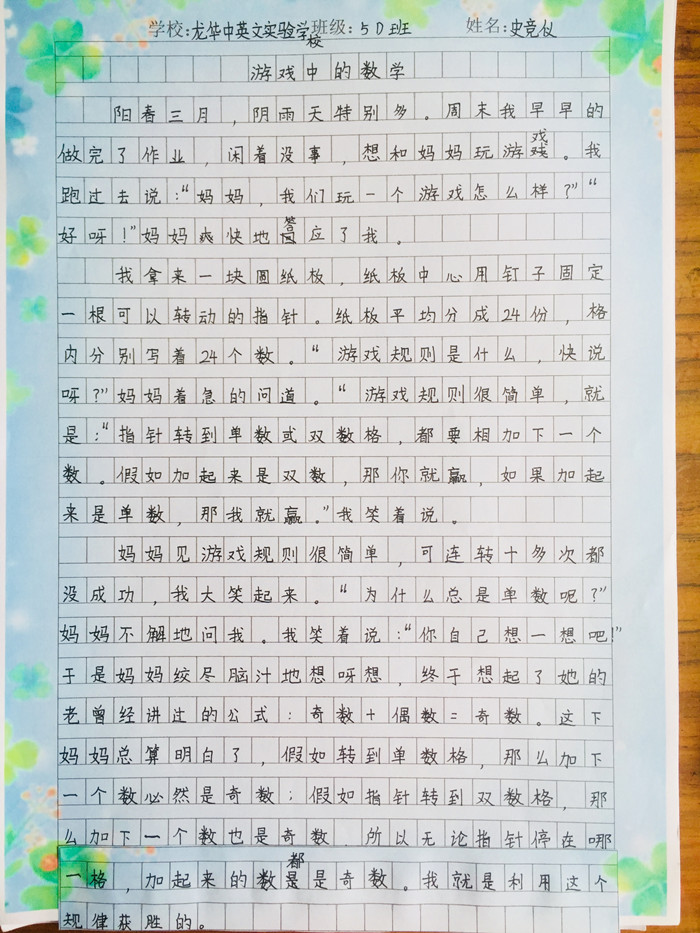 学校:龙华中英文实验学校班级:5D班 姓名:史竞仪
游戏中的数学
阳春三月,阴雨天特别多。周末我早早的
做完了作业,闲着没事,想和妈妈玩游戏。我
跑过去说:“妈妈,我们玩一个游戏怎么样?”“
好呀!”妈妈爽快地答应了我。
我拿来一块圆纸板,纸板中心用钉子固定
一根可以转动的指针。纸板平均分成24份,格
内分别写着24个数。“游戏规则是什么,快说
呀?”妈妈着急的问道。“游戏规则很简单,就
是:“指针转到单数或双数格,都要相加下一个
数。假如加起来是双数,那你就赢,如果加起
来是单数,那我就赢。”我笑着说。
妈妈见游戏规则很简单,可连转十多次都
没成功,我大笑起来。“为什么总是单数呢?”
妈妈不解地问我。我笑着说:“你自己想一想吧!”
于是妈妈绞尽脑汁地想呀想,终于想起了她的
老曾经讲过的公式:奇数+偶数=奇数。这下
妈妈总算明白了,假如转到单数格,那么加下
一个数必然是奇数;假如指针转到双数格,那
么加下一个数也是奇数.所以无论指针停在哪
一格,加起来的数都是奇数。我就是利用这个
规律获胜的。